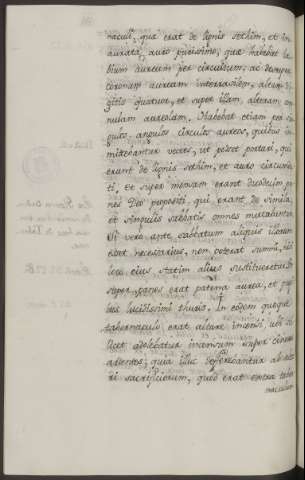 naculi, quæ erat de lignis sethim, et in
aurata auro purissimo, quæ habebat la
bium aureum per circuitum, ac desuper
coronam auream interrasilem, altam di
gitis quatuor, et super illam, alteram co
ronulam aureolam. Habebat etiam per sin
gulos angulos circulos aureos, quibus im
mittebantur vectes, ut posset portari, qui
erant de lignis sethim, et auro circumda
ti, et super mensam erant duodecim pa
nes Deo propositi, qui erant de simila,
et singulis sabbatis omnes mutabantur
Si vero ante sabbatum aliquis illorum
esset necessarius, non poterat sumi, nisi
loco eius statim alius substitueretur
super panes erat patena aurea, et super
thus lucidissimum. In eodem quoque
tabernaculo erat altare incensi, ubi sci
licet adolebatur incensum super
ardentes, quia illuc deferebantur ab alta
ri sacrificiorum, quod erat extra taber
naculum